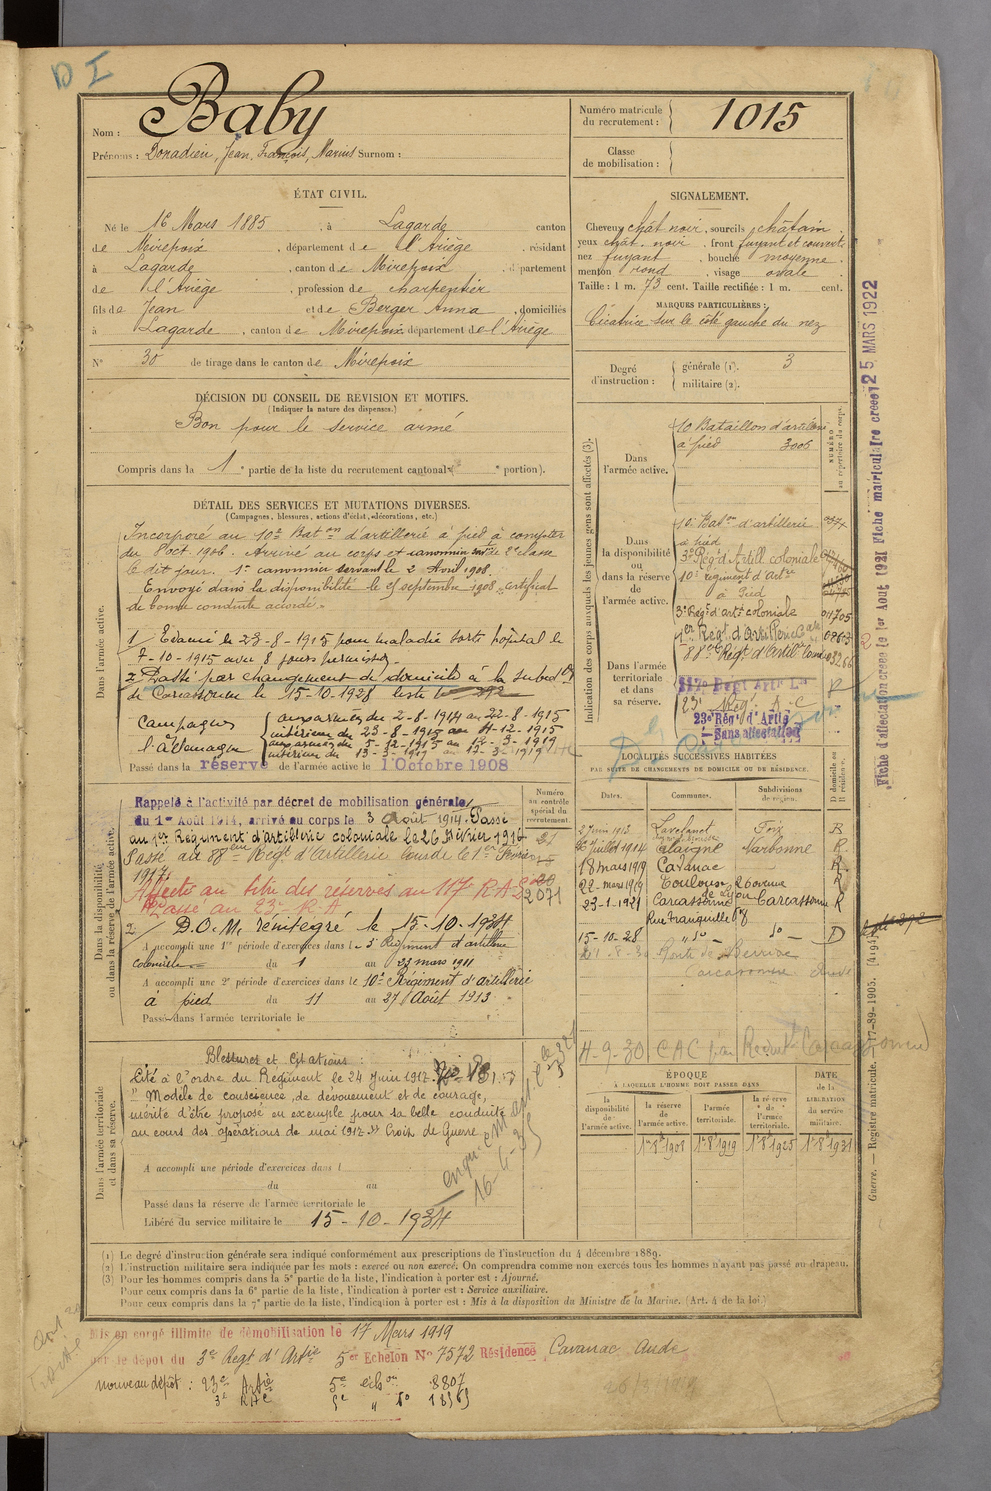 D I
Nom : Baby
Prénoms : Donadieu, Jean, François, Marius Surnom :
Numéro matricule du recrutement : 1015
Classe de mobilisation :
ÉTAT CIVIL.
Né le 16 Mars 1885, à Lagarde canton
de Mirepoix, département de l'Ariège, résidant
à Lagarde, canton de Mirepoix, département
de l'Ariège, profession de charpentier
fils de Jean et de Berger Anna, domiciliés
à Lagarde, canton de Mirepoix département de l'Ariège
N° 30 de tirage dans le canton de Mirepoix
SIGNALEMENT.
Cheveux chât noir, sourcils châtain
yeux chât. noir, front fuyant et couvert
nez fuyant, bouche moyenne
menton rond, visage ovale
Taille : 1 m. 73 cent. Taille rectifiée : 1 m. cent.
MARQUES PARTICULIÈRES :
Cicatrice sur le côté gauche du nez
Degré d'instruction : générale (1). 3
militaire (2).
DÉCISION DU CONSEIL DE RÉVISION ET MOTIFS.
(Indiquer la nature des dispenses.)
Bon pour le service armé
Compris dans la 1e partie de la liste du recrutement cantonal ( e portion).
DÉTAIL DES SERVICES ET MUTATIONS DIVERSES.
(Campagnes, blessures, actions d'éclat, décorations, etc.)
Dans l'armée active.
Incorporé au 10e Baton d'artillerie à pied à compter
du 8 oct. 1906. Arrivé au corps et canonnier servt de 2e classe
le dit jour. 1er canonnier servant le 2 Avril 1908.
Envoyé dans la disponibilité le 25 septembre 1908, certificat
de bonne conduite accordé.
1/ Evacué le 23-8-1915 pour maladie sorti hôpital le
7-10-1915 avec 8 jours permission.
2 Passé par changement de domicile à la subdon
de Carcassonne le 15-10-1928 liste le 292
Campagnes
l'Allemagne
aux armées du 2-8-1914 au 22-8-1915
intérieur du 23-8-1915 au 4-12-1915
aux armées du 5-12-1915 au 12-3-1919
intérieur du 13-3-1919 au 15-3-1919
Passé dans la réserve de l'armée active le 1 Octobre 1908
Dans la disponibilité ou dans la réserve de l'armée active.
Numéro au contrôle spécial du recrutement.
Rappelé à l'activité par décret de mobilisation générale
du 1er Août 1914, arrivé au corps le 3 Août 1914. Passé
au 1er Régiment d'artillerie coloniale le 26 Février 1916
Passé au 88eme Régt d'Artillerie lourde le 1er Février
1917.
Affecté au titre des réserves au 117e R.A.L.
Passé au 23e R.A
2071
2/ D.O.M. réintégré le 15-10-1934
A accompli une 1re période d'exercices dans le 3e Régiment d'artillerie
coloniale du 1 au 23 mars 1911
A accompli une 2e période d'exercices dans le 10e Régiment d'artillerie
à pied du 11 au 27 Août 1913
Passé dans l'armée territoriale le
Dans l'armée territoriale et dans sa réserve.
Blessures et Citations :
Cité à l'ordre du Régiment le 24 Juin 1917
" Modèle de conscience, de dévouement et de courage,
mérite d'être proposé en exemple pour sa belle conduite
au cours des opérations de mai 1917 " Croix de Guerre
A accompli une période d'exercices dans l
du au
Passé dans la réserve de l'armée territoriale le
Libéré du service militaire le 15-10-1934
Indication des corps auxquels les jeunes gens sont affectés (3).
NUMÉRO au répertoire du corps.
Dans l'armée active.
10 Bataillon d'artillerie
à pied 3005
Dans la disponibilité ou dans la réserve de l'armée active.
10e Baton d'artillerie
à pied
3e Régt d'Artill. coloniale
10e régiment d'Arte
à Pied
3e Régt d'artie coloniale 04705
88eme Régt d'Artillie Lourde 03266
Dans l'armée territoriale et dans sa réserve.
117e Régt Artie Lde
23e Régt d'Artie
Sans affectation
LOCALITÉS SUCCESSIVES HABITÉES
PAR SUITE DE CHANGEMENTS DE DOMICILE OU DE RÉSIDENCE.
Dates. Communes. Subdivisions de région. D domicile ou R résidence.
2 Juin 1913 Lavelanet Foix R
26 Juillet 1914 Alaigne Narbonne R
18 mars 1919 Cavanac R
22-mars 1919 Toulouse R
23-1-1921 Carcassonne Carcassonne R
Rue Tranquille 68
15-10-28 " do do D
4-9-30
ÉPOQUE
À LAQUELLE L'HOMME DOIT PASSER DANS
la disponibilité de l'armée active. la réserve de l'armée active. l'armée territoriale. la réserve de l'armée territoriale. DATE de la LIBÉRATION du service militaire.
1er 8bre 1908 1er 8bre 1919 1er 8bre 1925 1er 8bre 1931
Fiche d'affectation creee le 1er Aout 1921 Fiche matriculaire creee 25 MARS 1922
Guerre. — Registre matricule. — 17-89-1905. [A 94]
(1) Le degré d'instruction générale sera indiqué conformément aux prescriptions de l'instruction du 4 décembre 1889.
(2) L'instruction militaire sera indiquée par les mots : exercé ou non exercé. On comprendra comme non exercés tous les hommes n'ayant pas passé au drapeau.
(3) Pour les hommes compris dans la 5e partie de la liste, l'indication à porter est : Ajourné.
Pour ceux compris dans la 6e partie de la liste, l'indication à porter est : Service auxiliaire.
Pour ceux compris dans la 7e partie de la liste, l'indication à porter est : Mis à la disposition du Ministre de la Marine. (Art. 4 de la loi.)
Mis en congé illimité de démobilisation le 17 Mars 1919
par le dépôt du 3e Regt d'Artie 5er Echelon N° 7572 Résidence Cavanac Aude
nouveau dépôt : 23e Artie 5e echon 8807
3e RAC 5e " do 18363